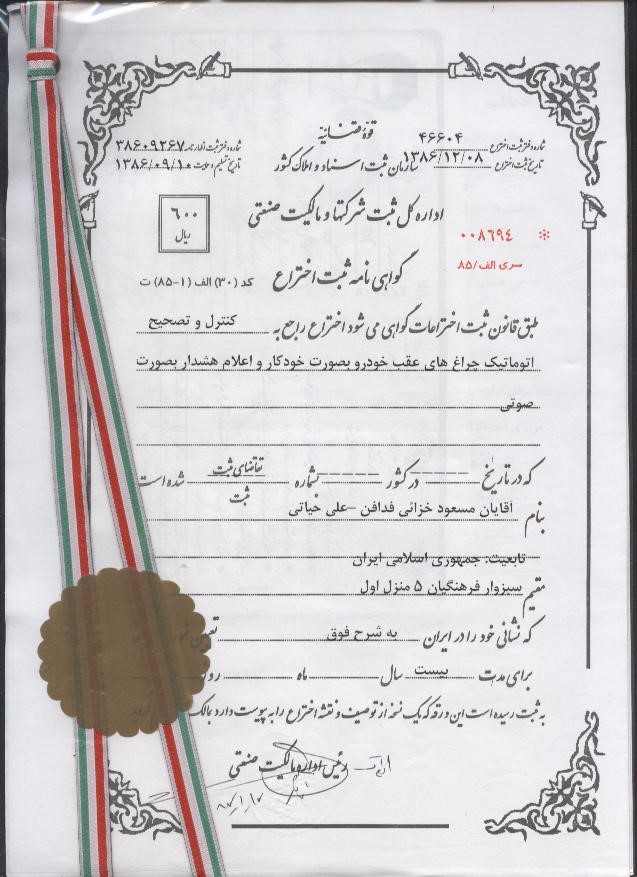 قوهٔ قضائیه
شماره دفتر ثبت اختراع ۴۶۶۰۴
شماره دفتر ثبت اظهارنامه ۳۸۶۰۹۲۶۷
تاریخ ثبت اختراع ۱۳۸۶/۱۲/۰۸
سازمان ثبت اسناد و املاک کشور
تاریخ تسلیم ۱۳۸۶/۰۹/۱۰
اداره کل ثبت شرکتها و مالکیت صنعتی
۶۰۰
ریال
* ۰۰۸۶۹۴
سری الف/۸۵
گواهی نامه ثبت اختراع
کد (۳۰) الف (۱-۸۵) ت
طبق قانون ثبت اختراعات گواهی می شود اختراع راجع به کنترل و تصحیح
اتوماتیک چراغ های عقب خودرو بصورت خودکار و اعلام هشدار بصورت
صوتی
که در تاریخ ------ در کشور ------ بشماره تقاضای ثبت شده است
ثبت
بنام آقایان مسعود خزائی فدافن -علی حیاتی
تابعیت: جمهوری اسلامی ایران
مقیم سبزوار فرهنگیان ۵ منزل اول
که نشانی خود را در ایران به شرح فوق تعیین
برای مدت بیست سال ماه
به ثبت رسیده است این ورقه که یک نسخه از توصیف و نقشه اختراع را به پیوست دارد بمالک
رئیس اداره مالکیت صنعتی